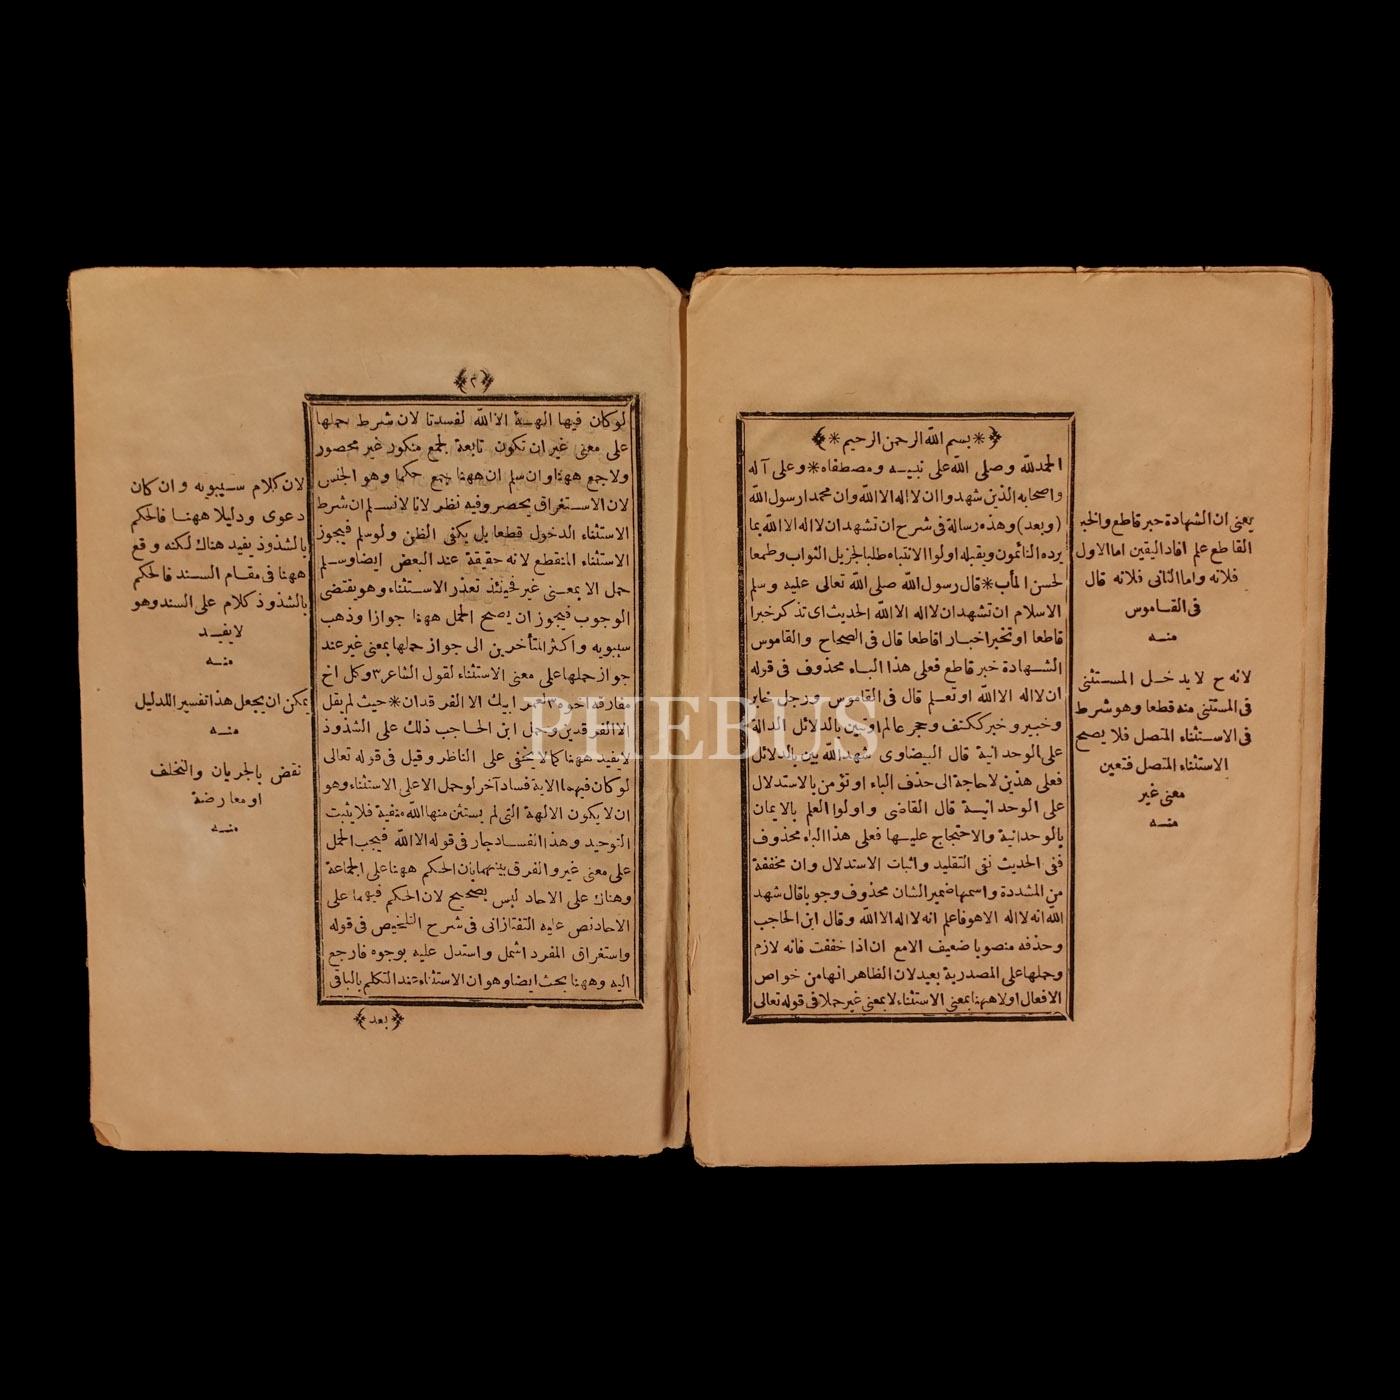 ﴿ * بسم الله الرحمن الرحيم * ﴾
الحمدلله وصلى الله على نبيـه ومصطفاه * وعلى آله
واصحابه الذين شهدوا ان لااله الاالله وان محمدا رسول الله
(وبعد) وهذه رسالة فى شرح ان تشهد ان لااله الاالله بما
يرده النائمون ويقبله اولوا الانتباه طلبا لجزيل الثواب وطمعا
لحسن المأب * قال رسول الله صلى الله تعالى عليه وسلم
الاسلام ان تشهد ان لااله الاالله الحديث اى تذكر خبرا
قاطعا او تخبر اخبارا قاطعا قال فى الصحاح والقاموس
الشهادة خبر قاطع فعلى هذا الباء محذوف فى قوله
ان لااله الاالله او تعلم قال فى القاموس ورجل خابر
وخبير وخبر ككتف وحجر عالم او تبين بالدلائل الدالة
على الوحدانية قال البيضاوى شهدالله بين بالدلائل
فعلى هذين لاحاجة الى حذف الباء او تؤمن بالاستدلال
على الوحدانية قال القاضى واولوا العلم بالايمان
بالوحدانية والاحتجاج عليها فعلى هذا الباء محذوف
ففى الحديث نفى التقليد واثبات الاستدلال وان مخففة
من المشددة واسمها ضمير الشان محذوف وجوبا قال شهد
الله انه لااله الاهو فاعلم انه لااله الاالله وقال ابن الحاجب
وحذفه منصوبا ضعيف الامع ان اذا خففت فانه لازم
وحملها على المصدرية بعيد لان الظاهر انها من خواص
الافعال اولا ههنا بمعنى الاستثناء لا بمعنى غير حملا فى قوله تعالى
يعنى ان الشهادة خبر قاطع والخبر
القاطع علم افاد اليقين اما الاول
فلانه واما الثانى فلانه قال
فى القاموس
منـه
لانه ح لا يدخل المستثنى
فى المستثنى منه قطعا وهو شرط
فى الاستثناء المتصل فلا يصح
الاستثناء المتصل فتعين
معنى غير
منـه
﴿٢﴾
لوكان فيها الهـة الاالله لفسدتا لان شرط حملها
على معنى غير ان تكون تابعة لجمع منكور غير محصور
ولا جمع ههنا وان سلم ان ههنا جمع حكما وهو الجنس
لان الاستغراق يحصر وفيه نظر لانا لانسلم ان شرط
الاستثناء الدخول قطعا بل يكفى الظن ولو سلم فيجوز
الاستثناء المنقطع لانه حقيقة عند البعض ايضا وسلم
حمل الا بمعنى غير فحينئذ تعذر الاستثناء وهو يقتضى
الوجوب فيجوز ان يصح الحمل ههنا جوازا وذهب
سيبويه واكثر المتأخرين الى جواز حملها بمعنى غير عند
جواز حملها على معنى الاستثناء لقول الشاعر ٣ وكل اخ
مفارقه اخوه ٣ لعمر ابيك الا الفرقدان * حيث لم يقل
الا الفرقدين وحمل ابن الحاجب ذلك على الشذوذ
لا يفيد ههنا كما لا يخفى على الناظر وقيل فى قوله تعالى
لوكان فيهما الاية فساد آخر لوحمل الا على الاستثناء وهو
ان لا يكون الالهة التى لم يستثن منها الله منفية فلا يثبت
التوحيد وهذا الفساد جار فى قوله الاالله فيجب الحمل
على معنى غير والفرق بينهما بان الحكم ههنا على الجماعة
وهناك على الاحاد ليس بصحيح لان الحكم فيهما على
الاحاد نص عليه التفتازانى فى شرح التلخيص فى قوله
واستغراق المفرد اشمل واستدل عليه بوجوه فارجع
اليه وههنا بحث ايضا وهو ان الاستثناء عند التكلم بالباقى
﴿بعد﴾
لان كلام سيبويه وان كان
دعوى ودليلا ههنا فالحكم
بالشذوذ يفيد هناك لكنه وقع
ههنا فى مقام السند فالحكم
بالشذوذ كلام على السند وهو
لا يفيد
منـه
يمكن ان يجعل هذا تفسير الدليل
منـه
نقض بالجريان والتخلف
او معارضة
منـه
PHEBUS